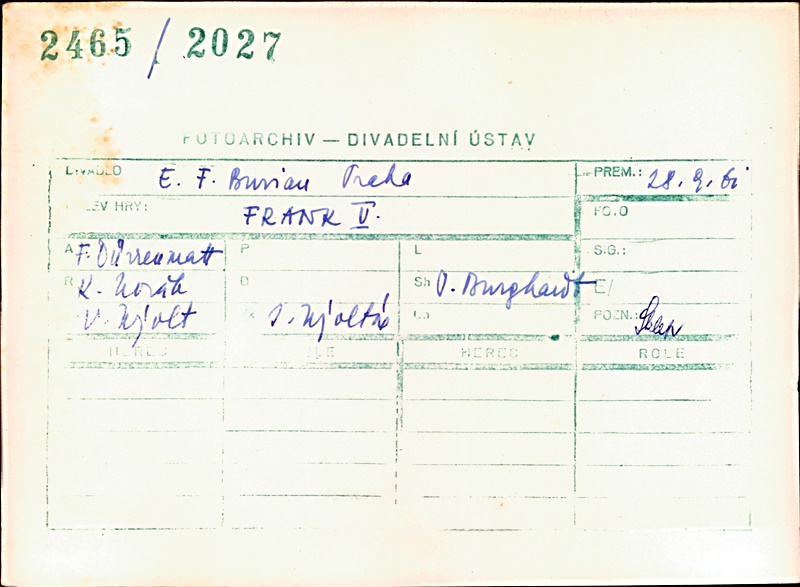 2465 / 2027
FOTOARCHIV — DIVADELNÍ ÚSTAV
DIVADLO E. F. Burian Praha PREM.: 28. 9. 61
EV HRY: FRANK V. FOTO
A F. Dürrenmatt P L SIG.:
R K. Novák D Sh O. Burghardt E/
V. Nývlt J. Nývltová POZN.:
HEREC ROLE HEREC ROLE